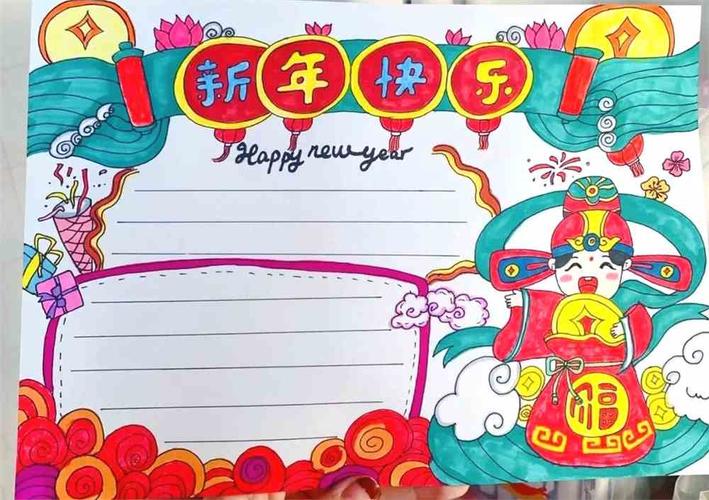 新年快乐
Happy new year
福